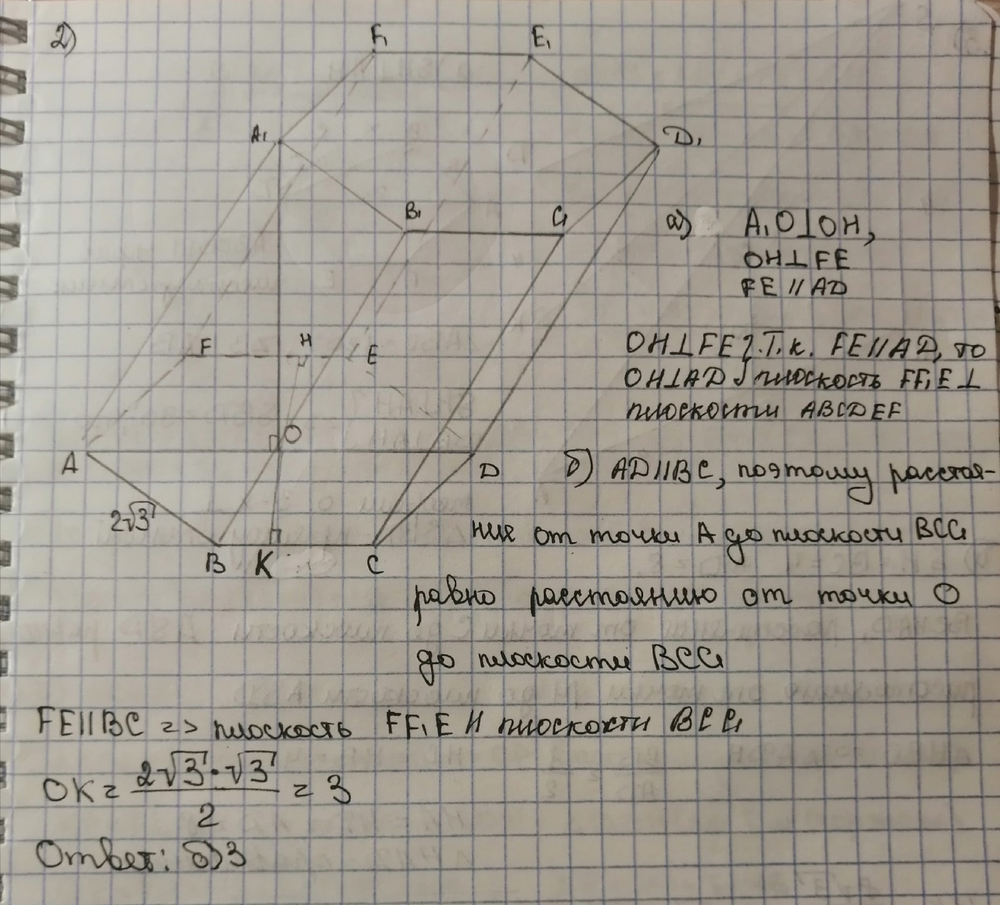 2)
F₁ E₁
A₁ D₁
B₁ C₁
а) A₁O⊥OH,
OH⊥FE
FE//AD
F H E
OH⊥FE } Т.к. FE//AD, то
OH⊥AD } плоскость FF₁E⊥
плоскости ABCDEF
O
A D
б) AD//BC, поэтому расстоя-
2√3
ние от точки A до плоскости BCC₁
B K C
равно расстоянию от точки O
до плоскости BCC₁
FE//BC => плоскость FF₁E // плоскости BCC₁
OK = 2√3·√3/2 = 3
Ответ: б)3